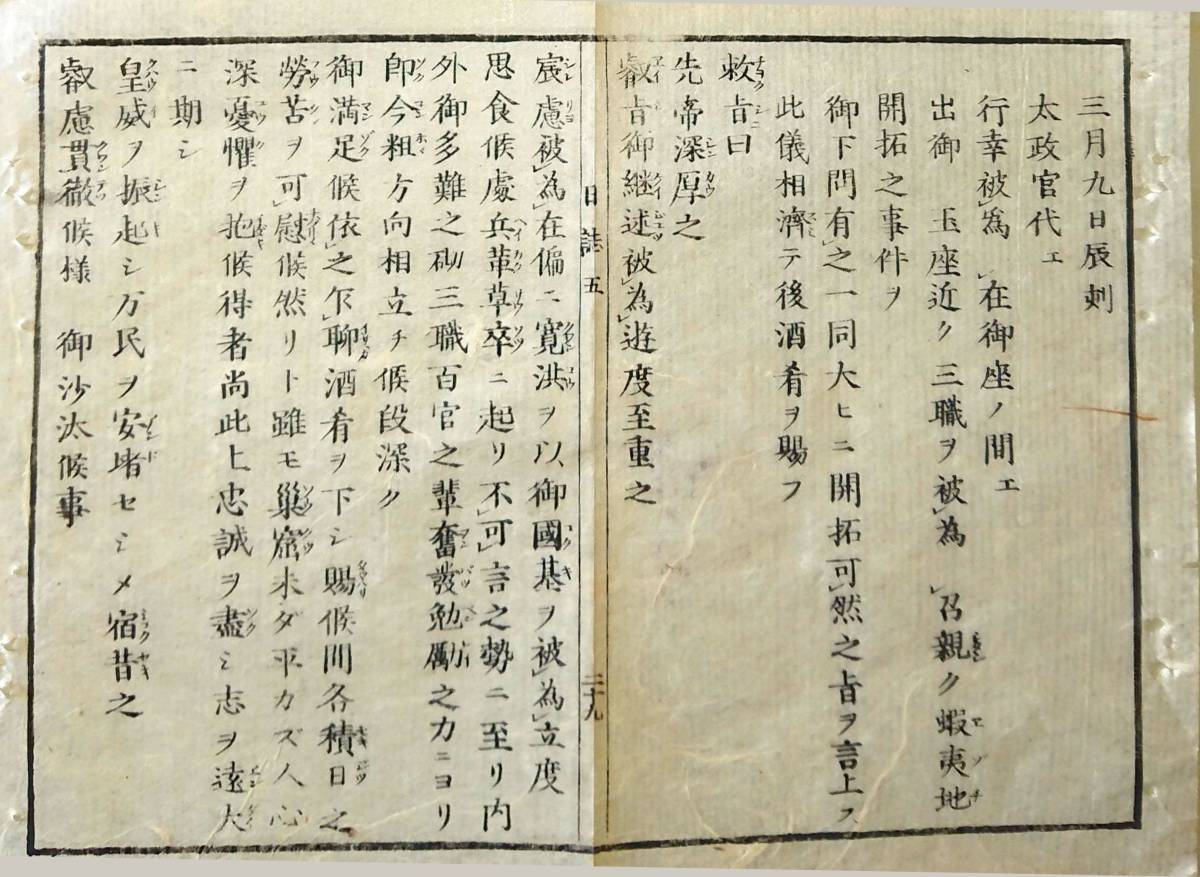 三月九日辰刻
太政官代エ
行幸被為在御座ノ間エ
出御　玉座近ク三職ヲ被為　召親ク蝦夷地
開拓之事件ヲ
御下問有之一同大ヒニ開拓可然之旨ヲ言上ス
此儀相濟テ後酒肴ヲ賜フ
敕旨曰
先帝深厚之
叡旨御継述被為遊度至重之
日誌五
二十九
宸慮被為在偏ニ寛洪ヲ以御國基ヲ被為立度
思食候處兵革草卒ニ起リ不可言之勢ニ至リ内
外御多難之砌三職百官之輩奮發勉勵之力ニヨリ
即今粗方向相立チ候段深ク
御満足候依之乍聊酒肴ヲ下シ賜候間各積日之
勞苦ヲ可慰候然リト雖モ巢窟未ダ平カズ人心
深憂懼ヲ抱候得者尚此上忠誠ヲ盡シ志ヲ遠大
ニ期シ
皇威ヲ振起シ万民ヲ安堵セシメ宿昔之
叡慮貫徹候様　御沙汰候事